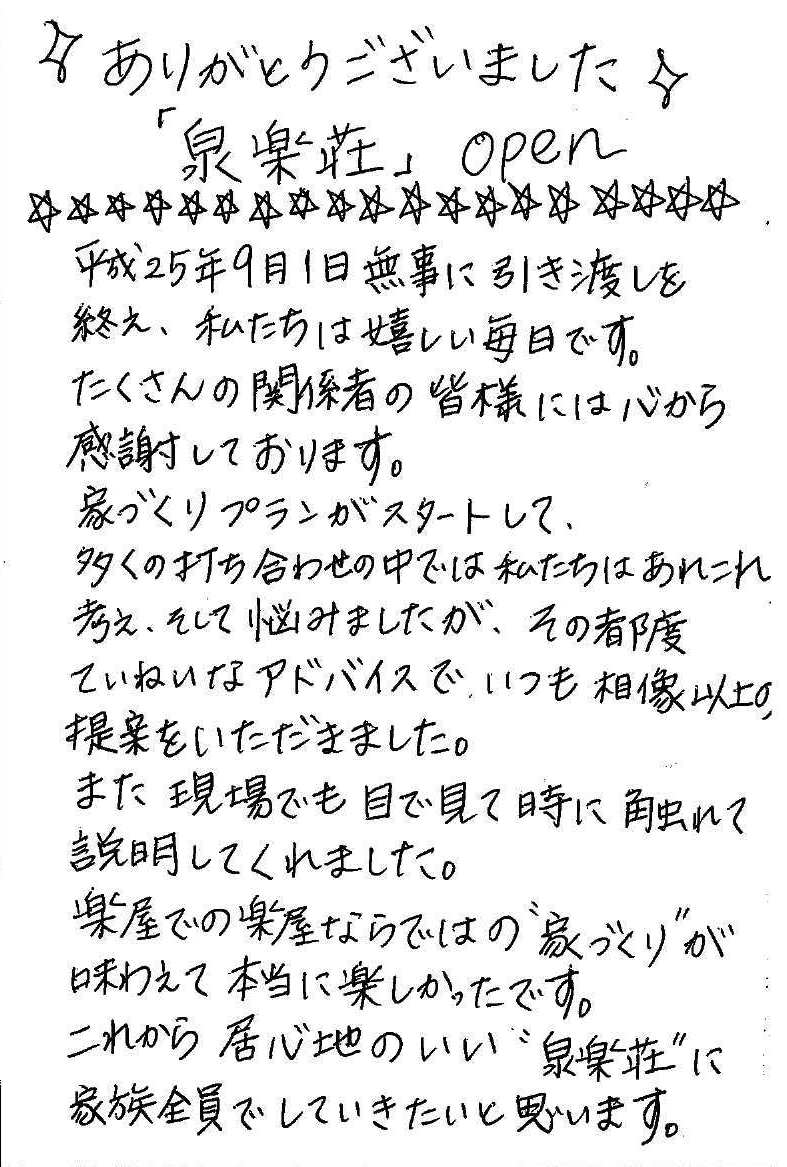 ありがとうございました
「泉楽荘」 open
平成25年9月1日無事に引き渡しを
終え、私たちは嬉しい毎日です。
たくさんの関係者の皆様には心から
感謝しております。
家づくりプランがスタートして、
多くの打ち合わせの中では私たちはあれこれ
考え、そして悩みましたが、その都度
ていねいなアドバイスで、いつも想像以上の
提案をいただきました。
また現場でも目で見て時に触れて
説明してくれました。
楽屋での楽屋ならではの“家づくり”が
味わえて本当に楽しかったです。
これから居心地のいい“泉楽荘”に
家族全員でしていきたいと思います。